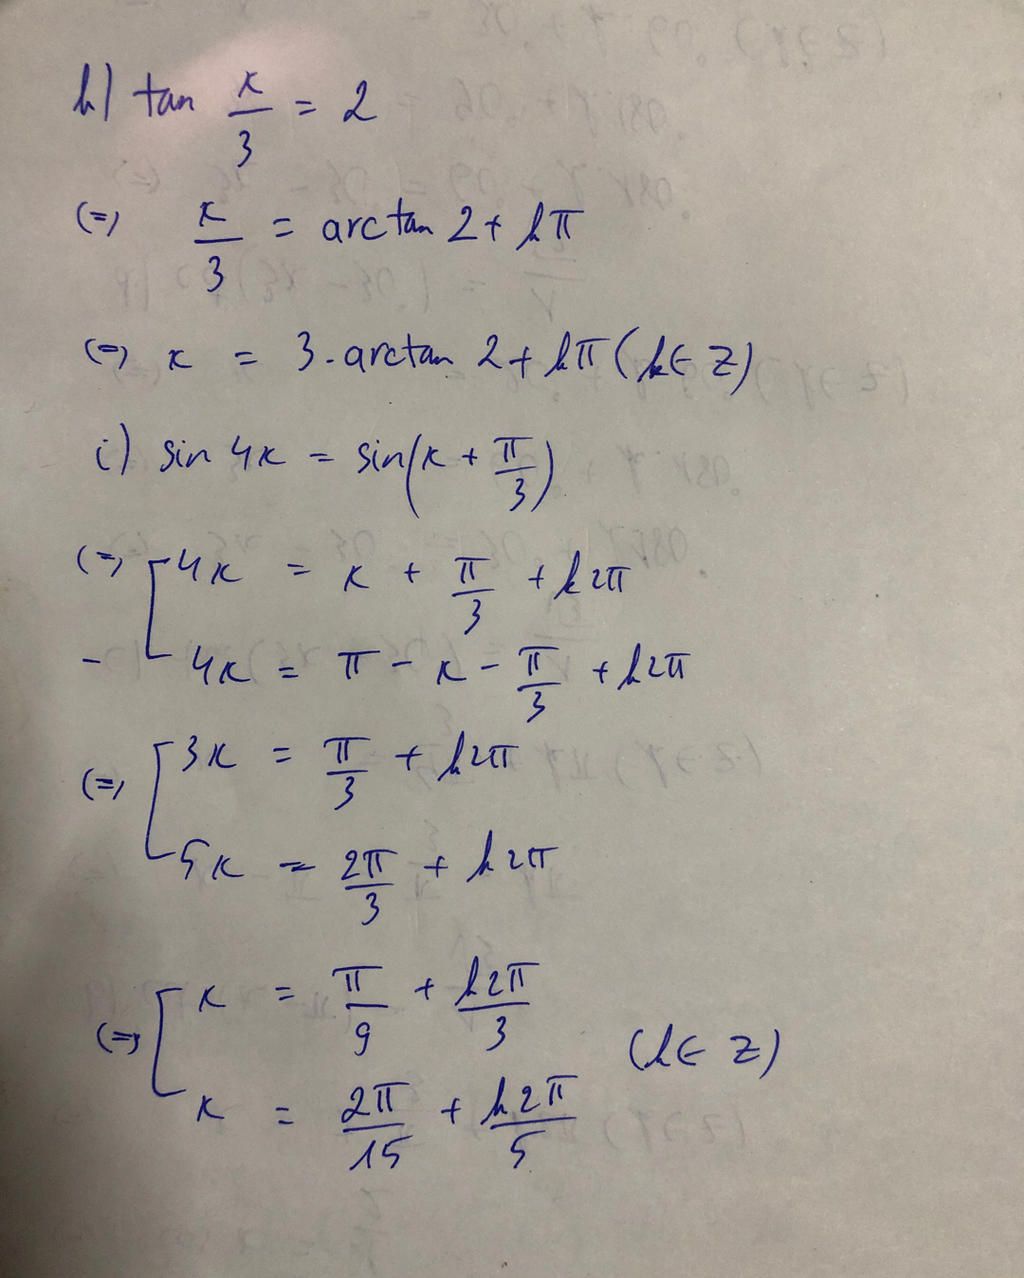 h) tan x/3 = 2
(=) x/3 = arctan 2 + kπ
(=) x = 3.arctan 2 + kπ (k ∈ Z)
i) sin 4x = sin(x + π/3)
(=) [ 4x = x + π/3 + k2π
- 4x = π - x - π/3 + k2π
(=) [ 3x = π/3 + k2π
5x = 2π/3 + k2π
(=) [ x = π/9 + k2π/3
(k ∈ Z)
x = 2π/15 + k2π/5